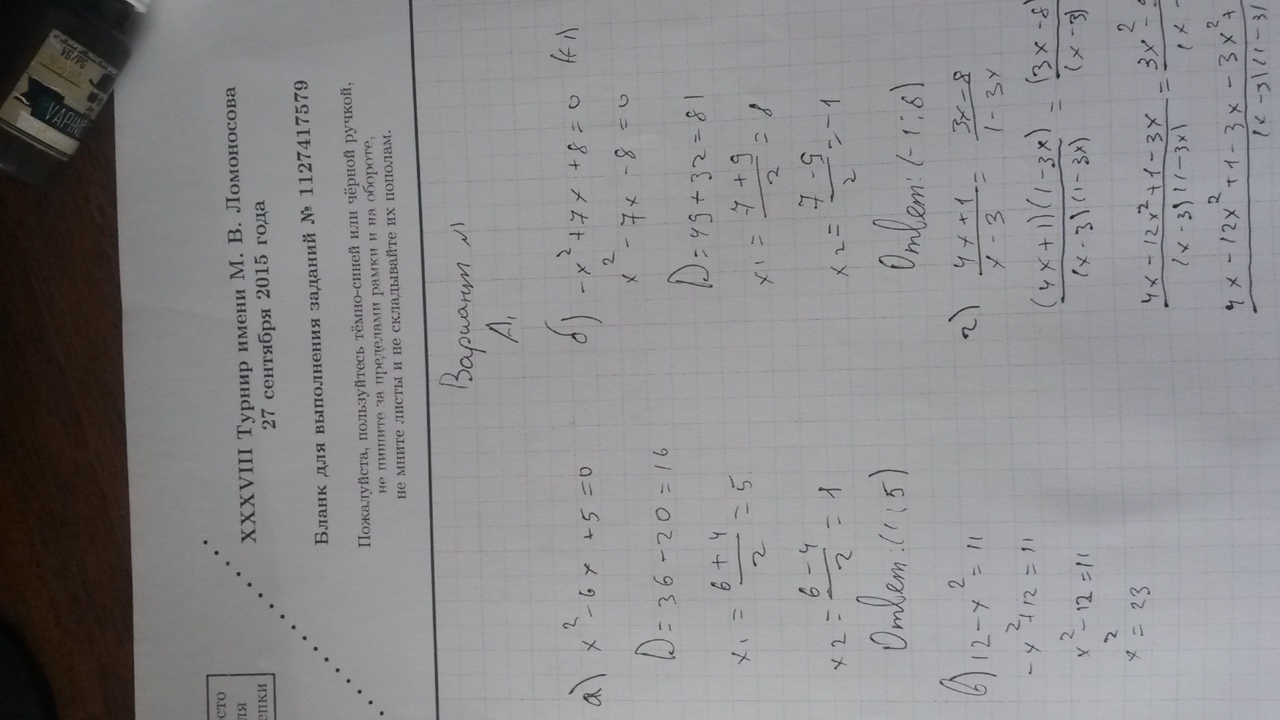 XXXVIII Турнир имени М. В. Ломоносова
27 сентября 2015 года
Бланк для выполнения заданий № 1127417579
Пожалуйста, пользуйтесь тёмно-синей или чёрной ручкой,
не пишите за пределами рамки и на обороте,
не мните листы и не складывайте их пополам.
Вариант №1
А1
а) x² - 6x + 5 = 0
D = 36 - 20 = 16
x1 = (6 + 4)/2 = 5
x2 = (6 - 4)/2 = 1
Ответ: (1; 5)
б) -x² + 7x + 8 = 0
x² - 7x - 8 = 0
D = 49 + 32 = 81
x1 = (7 + 9)/2 = 8
x2 = (7 - 9)/2 = -1
Ответ: (-1; 8)
в) 12 - x² = 11
-x² + 12 = 11
x² - 12 = 11
x² = 23
г) (4x + 1)/(x - 3) = (3x - 8)/(1 - 3x)
(4x + 1)(1 - 3x)/(x - 3)(1 - 3x) = (3x - 8)/(x - 3)
4x - 12x² + 1 - 3x/(x - 3)(1 - 3x) = 3x² -/(x -
4x - 12x² + 1 - 3x - 3x² +/(x - 3)(1 - 3